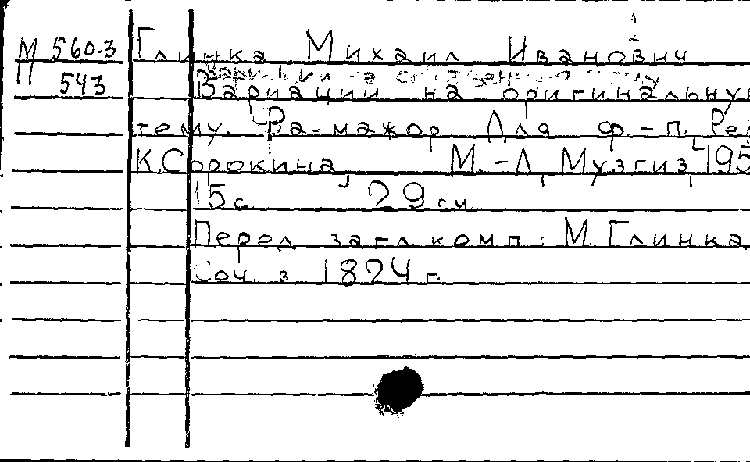 М 560-3
543
Глинка Михаил Иванович
Вариации на оригинальную
тему. Фа-мажор Для ф.-п. Ред
К.Сорокина, М.-Л, Музгиз, 195
15с 29см
Перед загл комп: М Глинка
Соч в 1824 г.